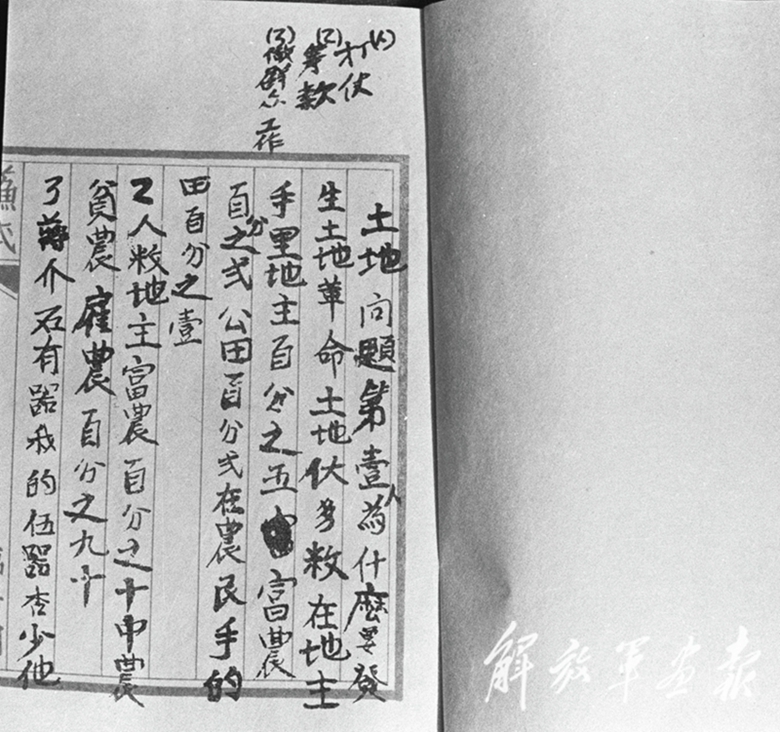 (1)打仗
(2)筹款
(3)做群众工作
土地问题第壹為什麼要發
生土地革命土地伏多数在地主
手里地主百分之五富農
百分之弍公田百分弍在農民手的
田百分之壹
2人数地主富農百分之十中農
貧農雇農百分之九十
3蒋介石有器我的伍器杳少他
解放军画报